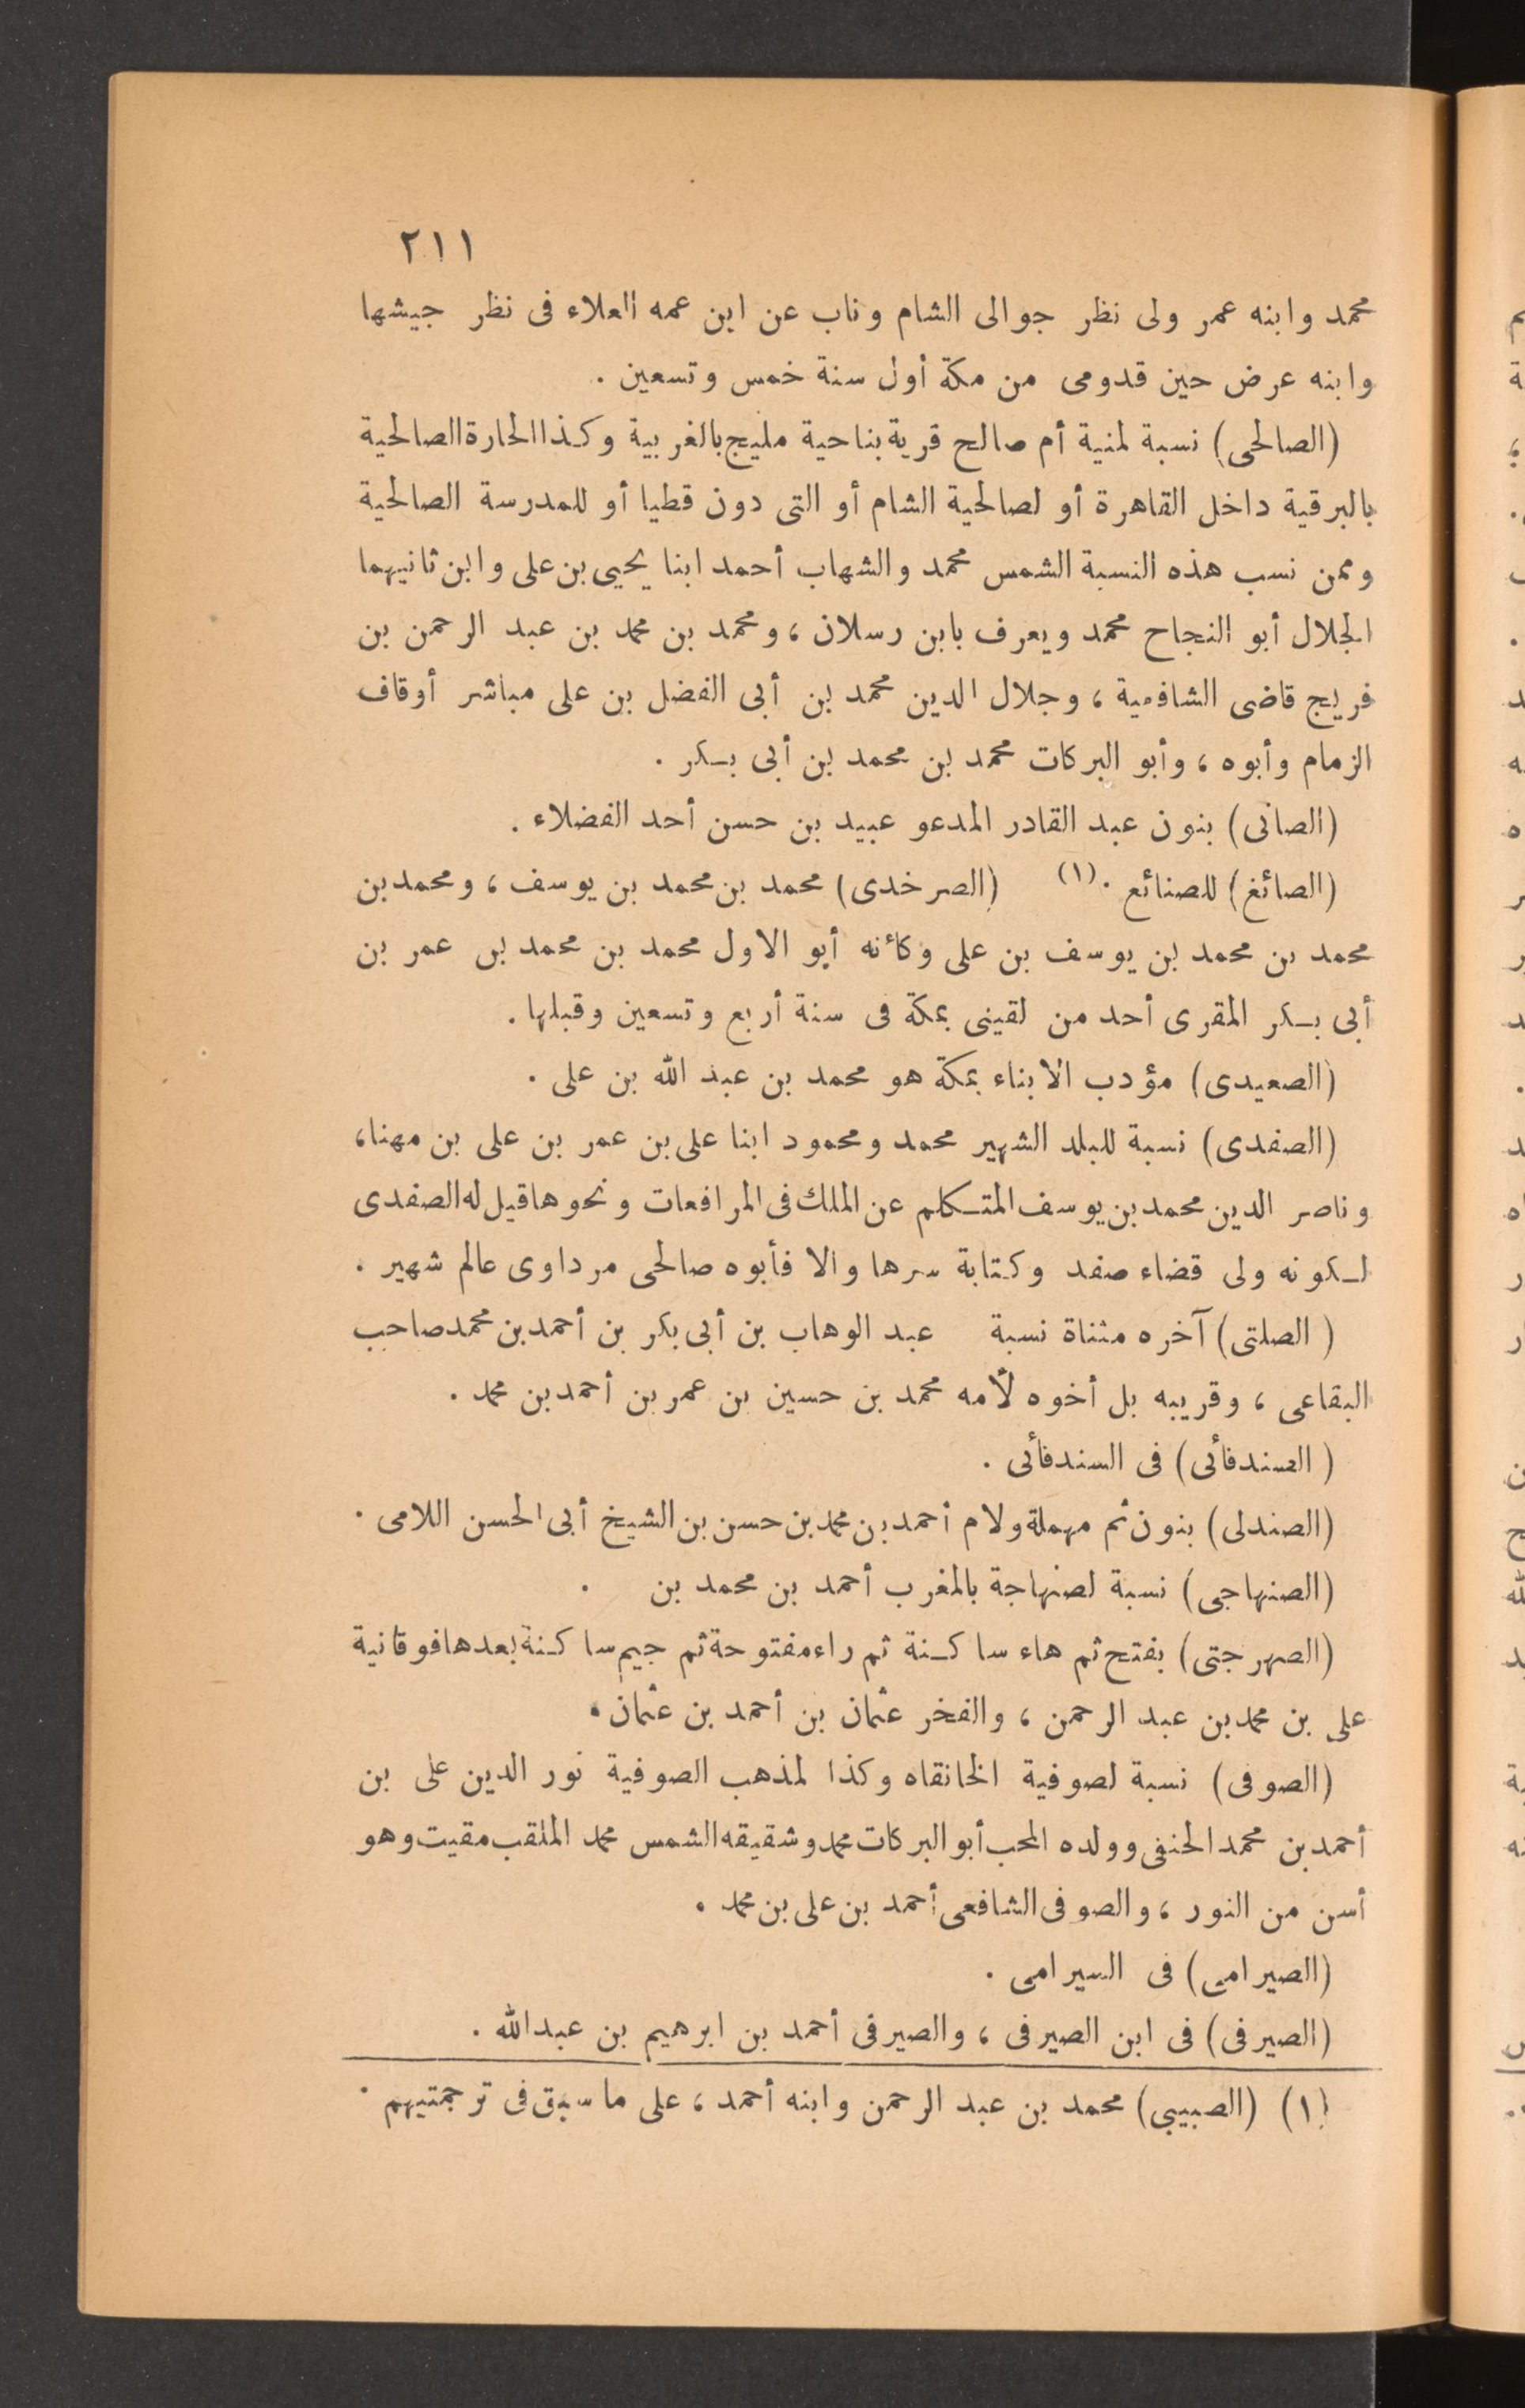 ٢١١
محمد وابنه عمر ولى نظر جوالى الشام وناب عن ابن عمه العلاء فى نظر جيشها
وابنه عرض حين قدومى من مكة أول سنة خمس وتسعين .
(الصالحى) نسبة لمنية أم صالح قرية بناحية مليج بالغربية وكذا الحارة الصالحية
بالبرقية داخل القاهرة أو لصالحية الشام أو التى دون قطيا أو للمدرسة الصالحية
وممن نسب هذه النسبة الشمس محمد والشهاب أحمد ابنا يحيى بن على وابن ثانيهما
الجلال أبو النجاح محمد ويعرف بابن رسلان ، ومحمد بن محمد بن عبد الرحمن بن
فريج قاضى الشافعية ، وجلال الدين محمد بن أبى الفضل بن على مباشر أوقاف
الزمام وأبوه ، وأبو البركات محمد بن محمد بن أبى بكر .
(الصانى) بنون عبد القادر المدعو عبيد بن حسن أحد الفضلاء .
(الصائغ) للصنائع .(١) (الصرخدى) محمد بن محمد بن يوسف ، ومحمد بن
محمد بن محمد بن يوسف بن على وكأنه أبو الاول محمد بن محمد بن عمر بن
أبى بكر المقرى أحد من لقينى بمكة فى سنة أربع وتسعين وقبلها .
(الصعيدى) مؤدب الابناء بمكة هو محمد بن عبد الله بن على .
(الصفدى) نسبة للبلد الشهير محمد ومحمود ابنا على بن عمر بن على بن مهنا ،
وناصر الدين محمد بن يوسف المتكلم عن الملك فى المرافعات ونحوها قيل له الصفدى
لكونه ولى قضاء صفد وكتابة سرها والا فأبوه صالحى مرداوى عالم شهير .
( الصلتى) آخره مثناة نسبة عبد الوهاب بن أبى بكر بن أحمد بن محمد صاحب
البقاعى ، وقريبه بل أخوه لأمه محمد بن حسين بن عمر بن أحمد بن محمد .
( الصندفائى) فى السندفائى .
(الصندلى) بنون ثم مهملة ولام أحمد بن محمد بن حسن بن الشيخ أبى الحسن اللامى .
(الصنهاجى) نسبة لصنهاجة بالمغرب أحمد بن محمد بن .
(الصهرجتى) بفتح ثم هاء ساكنة ثم راء مفتوحة ثم جيم ساكنة بعدها فوقانية
على بن محمد بن عبد الرحمن ، والفخر عثمان بن أحمد بن عثمان .
(الصوفى) نسبة لصوفية الخانقاه وكذا لمذهب الصوفية نور الدين على بن
أحمد بن محمد الحنفى وولده المحب أبو البركات محمد وشقيقه الشمس محمد الملقب مقيت وهو
أسن من النور ، والصوفى الشافعى أحمد بن على بن محمد .
(الصيرامى) فى السيرامى .
(الصيرفى) فى ابن الصيرفى ، والصيرفى أحمد بن ابرهيم بن عبد الله .
(١) (الصبيبى) محمد بن عبد الرحمن وابنه أحمد ، على ما سبق فى ترجمتيهم .